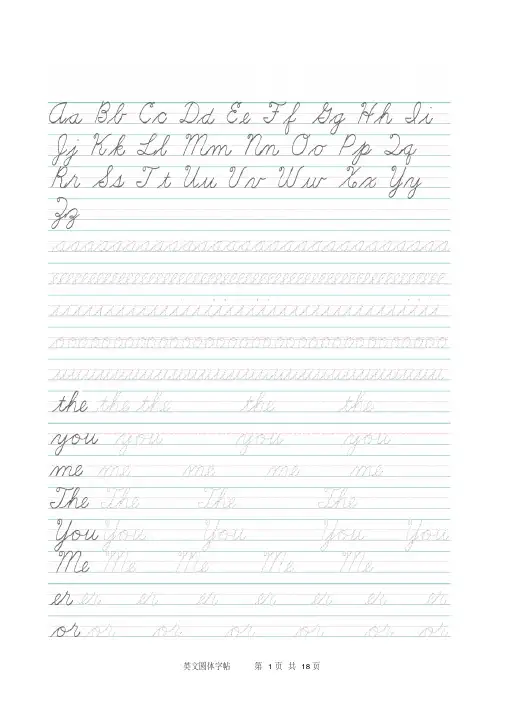 Aa Bb Cc Dd Ee Ff Gg Hh Ii
Jj Kk Ll Mm Nn Oo Pp Qq
Rr Ss Tt Uu Vv Ww Xx Yy
Zz
aaaaaaaaaaaaaaaaaaaaaaaaaaaaaa
eeeeeeeeeeeeeeeeeeeeeeeeeeeeeeeeeeee
iiiiiiiiiiiiiiiiiiiiiiiiiiiiiiiiii
oooooooooooooooooooooooooooooo
uuuuuuuuuuuuuuuuuuuuuuuuuuuu
the the the the the
you you you you
me me me me me
The The The The
You You You You You
Me Me Me Me Me
er er er er er er er
or or or or or or or
英文圆体字帖 第 1 页 共 18 页